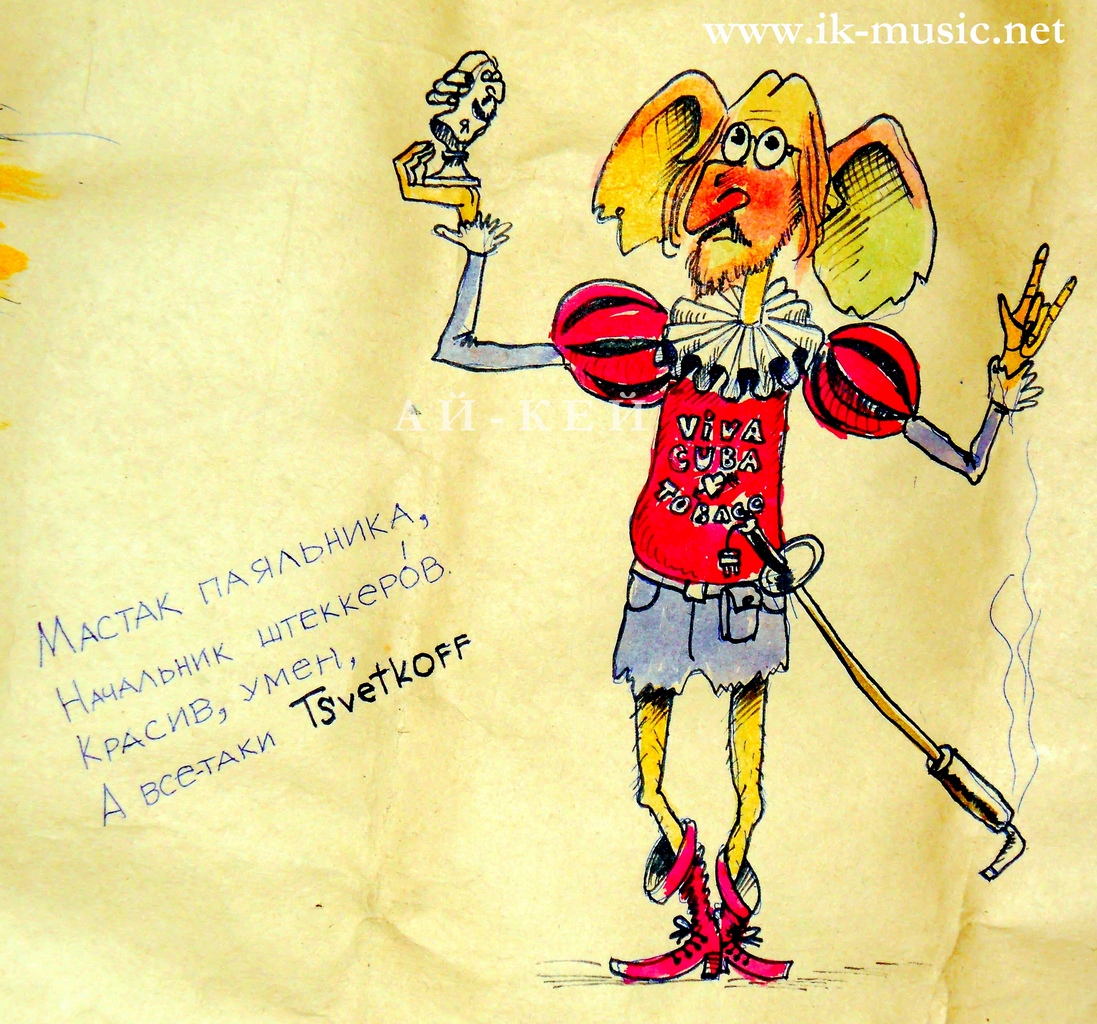 www.ik-music.net
АЙ-КЕЙ
VIVA
CUBA
TOBACC
Мастак паяльника,
Начальник штеккеро́в.
Красив, умен,
А все-таки Tsvetkoff